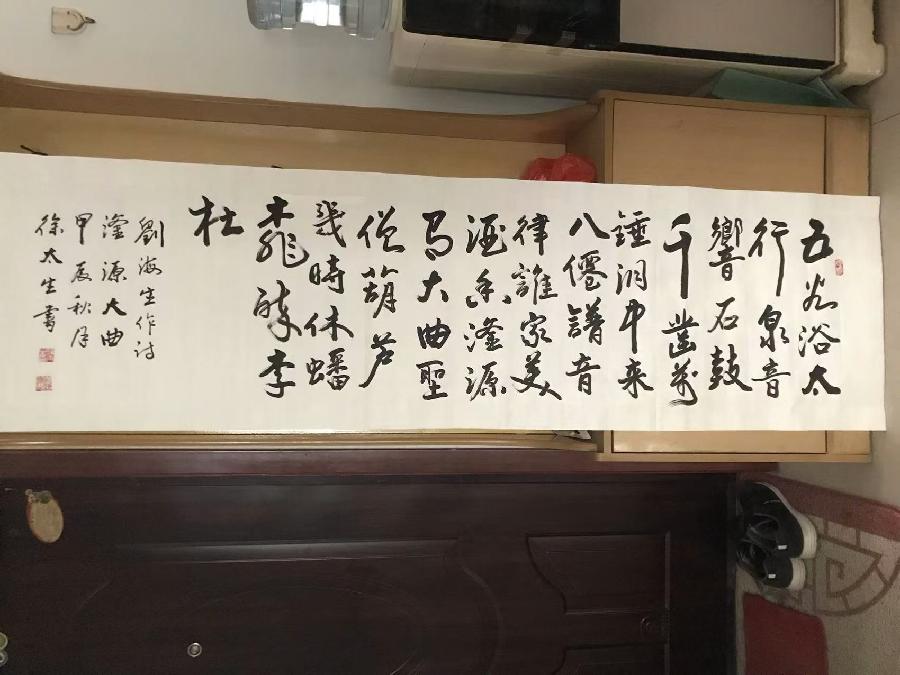 五谷浴太
行泉音
響石鼓
千凿萬
錘洞中来
八僊譜音
律誰家美
酒香滏源
大曲聖
僧葫芦
幾時休蟠
龍醉李
杜
劉海生作诗
滏源大曲
甲辰秋月
徐太生書